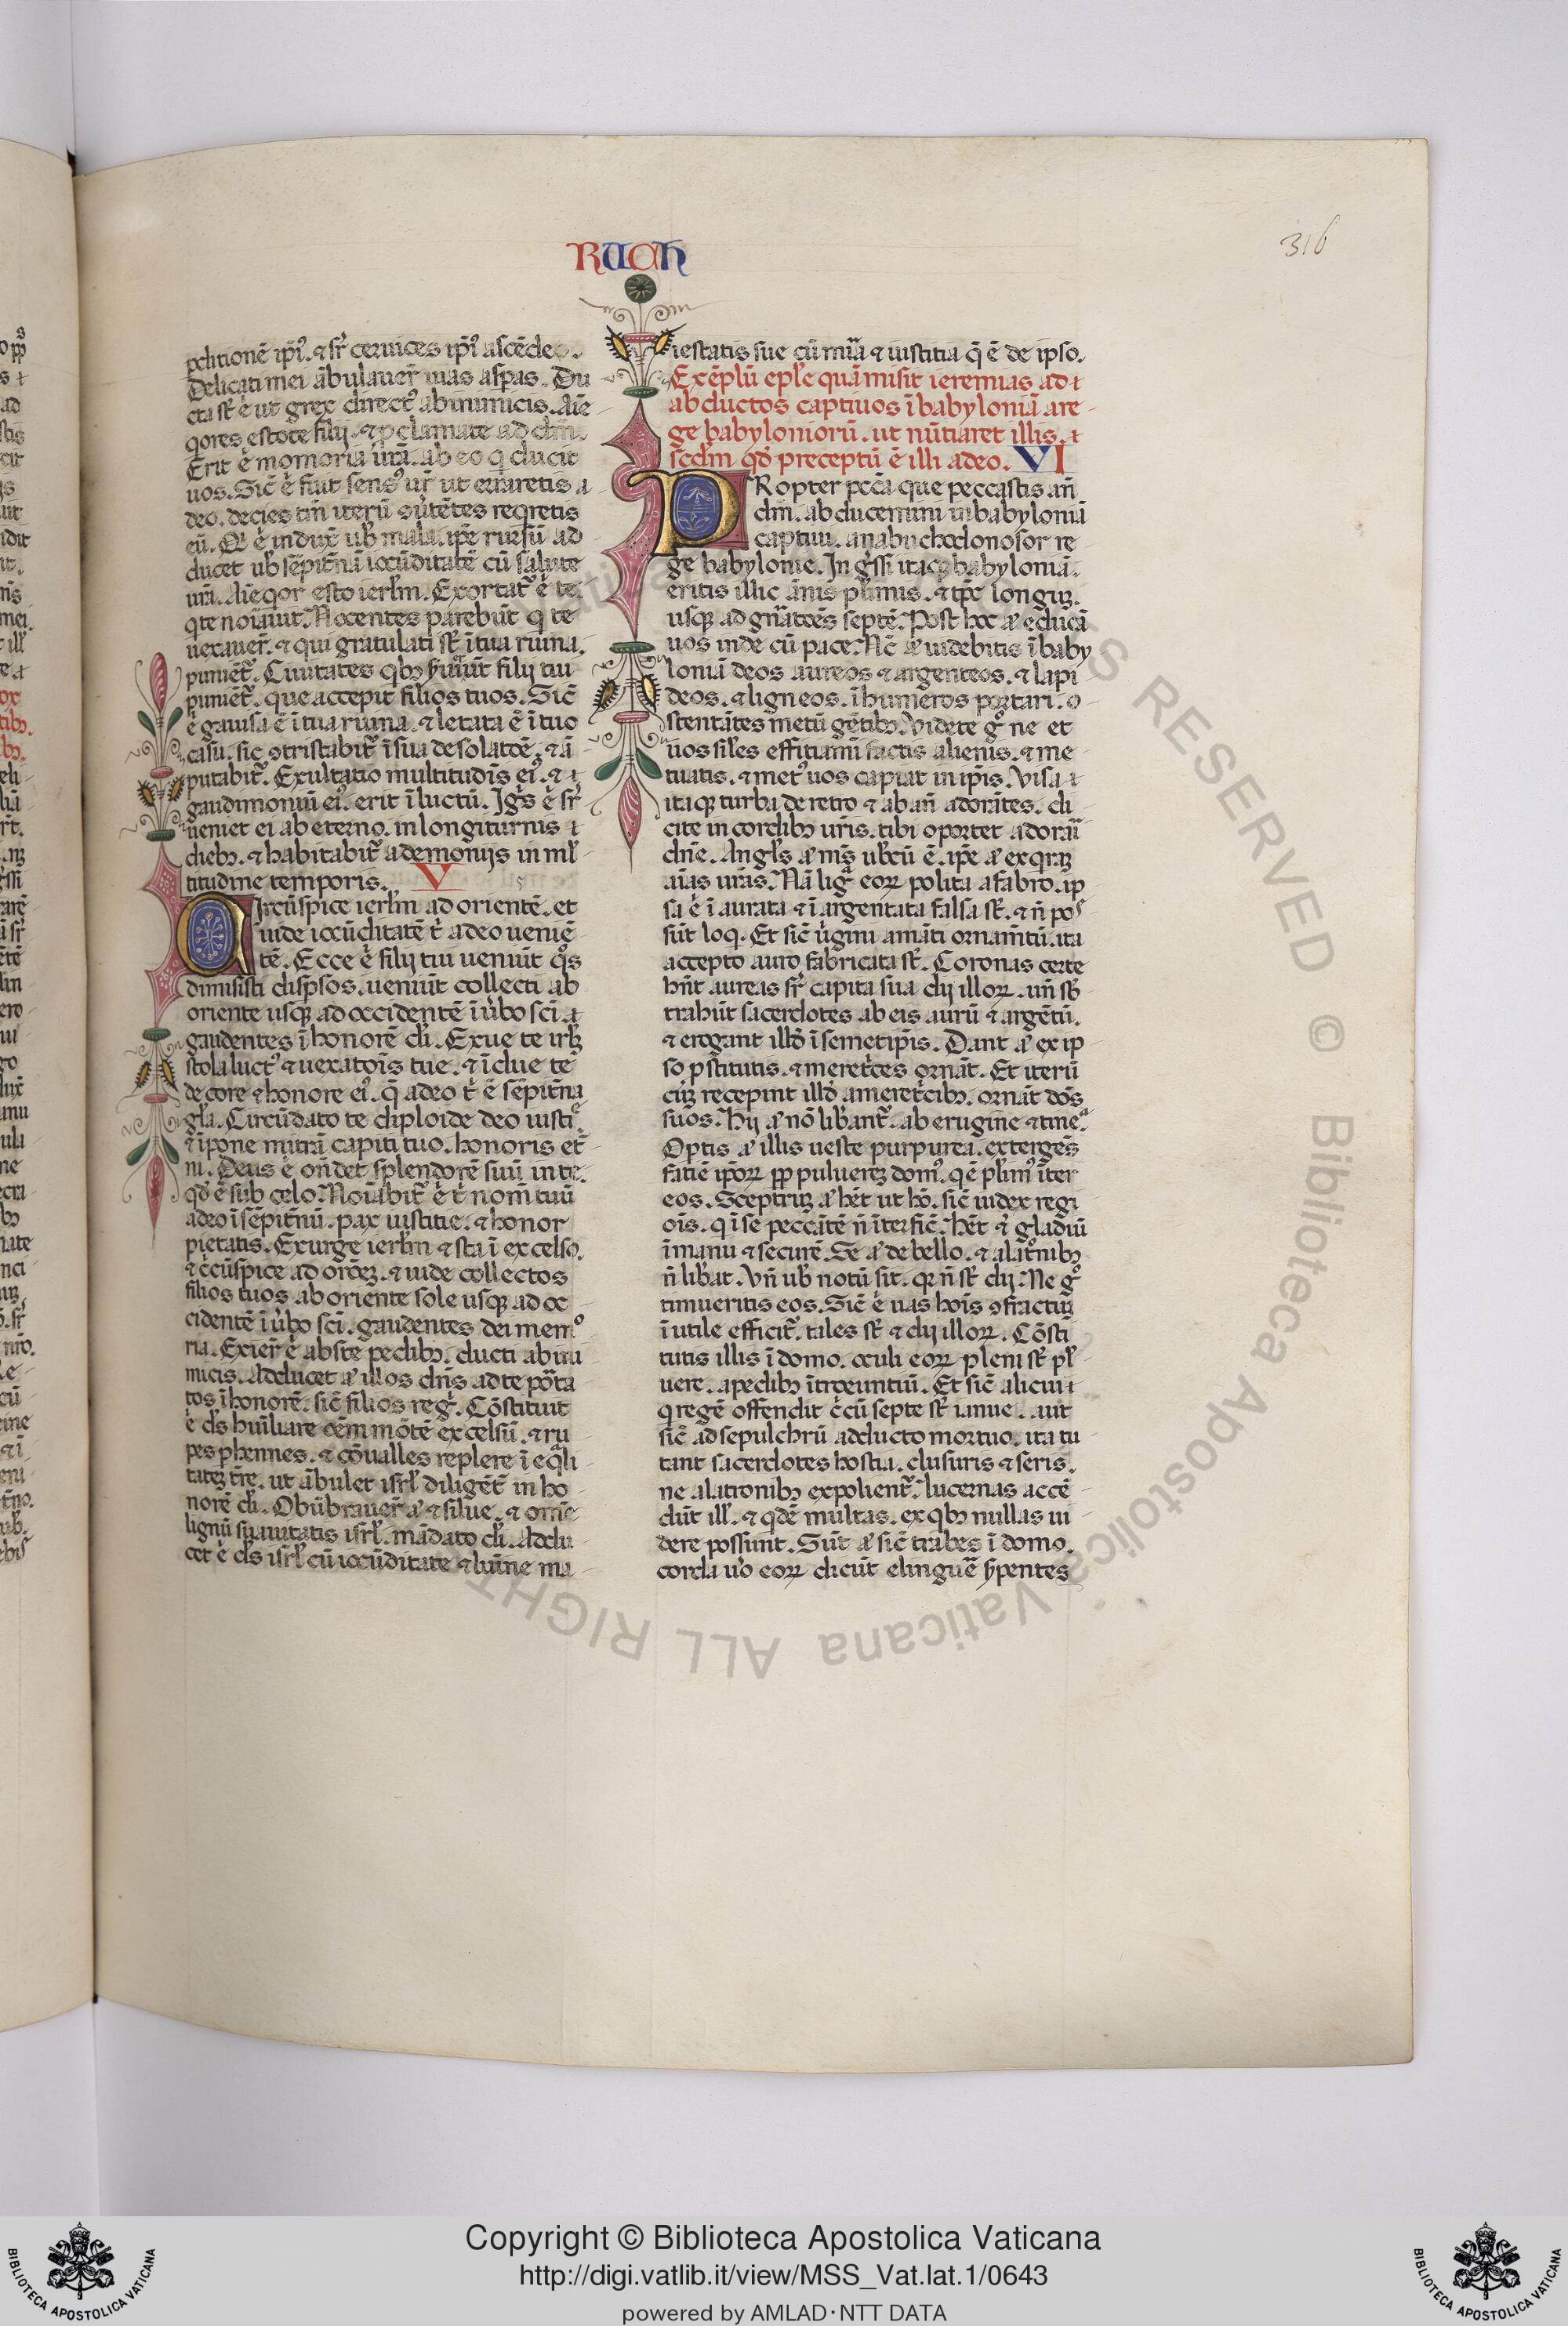 RUCH
316
pditionē ipi᷒. ⁊ sr̄ ceruices ipi᷒ ascēde
Delicati mei ābulauer̄ uias aspas. Du
cta st̄ .n. ut grex direct᷒ ab inimicis. Aīe
qores estote filij. ⁊ pclamate ad dm̄.
Erit .n. memoria ūra. ab eo q ducit
uos. Sic̄ .n. fuit sens᷒ ur̄ ut erraretis a
deo. decies tm̄ iterū ɔuertētes reqretis
eū. Qi .n. induxit uob̄ mala. ipe rursū ad
ducet uob̄ sēpitnā iocūditatē cū salute
ura. Aīeqor esto ierlm̄. Exortat̄ .n. te.
q te noīauit. Nocentes paribūt q te
uexauer̄. ⁊ qui gratulati st̄ ī tua ruina.
puniēt̄. Ciuitates qbꝫ ẜuiūt filij tui
puniēt̄. que accepit filios tuos. Sic̄
.n. gauisa ē ī tua ruina. ⁊ letata ē ī tuo
casu. sic ɔtristabit̄ ī sua desolatōe. ⁊ ā
putabit̄. Exultatio multitudīs ei᷒. ⁊
gaudimoniū ei᷒. erit ī luctū. Igs .n. sr̄
ueniet ei ab eterno. in longiturnis
diebꝫ. ⁊ habitabit̄ a demonijs in ml̄
titudine temporis. V
CIrcūspice ierlm̄ ad orientē. et
uide iocūditatē t a deo ueniē
tē. Ecce .n. filij tui ueniūt qs
dimisisti dispsos. ueniūt collecti ab
oriente usqꝫ ad occidentē ī uerbo sci
gaudentes ī honorē di. Exue te irlꝫ
stola luct᷒ ⁊ uexatoīs tue. ⁊ īdue te
decore ⁊ honore ei᷒. q a deo t ē sēpitna
gla. Circūdato te diploide deo iusti
⁊ īpone mitrā capiti tuo. honoris et
ni. Deus .n. onđet splendorē suū in te.
qđ ē sub celo. Noīabit̄ .n. t nom̄ tuū
a deo ī sēpitnū. pax iustitie. ⁊ honor
pietatis. Exurge ierlm̄ ⁊ sta ī excelso.
⁊ ccūspice ad orētꝫ. ⁊ uide collectos
filios tuos ab oriente sole usqꝫ ad oc
cidentē ī ubo sci. gaudentes dei memo
ria. Exier̄ .n. abs te pedibꝫ. ducti ab ini
micis. Adducet at illos dn̄s ad te porta
tos ī honorē. sic̄ filios regī. Cōstituit
.n. ds huīliare oēm mōtē excelsū. ⁊ ru
pes phennes. ⁊ cōualles replere ī eqli
tateꝫ tr̄e. ut ābulet isrl̄ diligēt in ho
norē di. Obūbrauer̄ at ⁊ silue. ⁊ omē
lignū suauitatis isrl̄. mādato di. Addu
cet .n. ds isrl̄ cū iocūditate ⁊ lumīe ma
iestatis sue cū mīa ⁊ iustitia q̄ ē de ipso.
Exēplū eple quā misit ieremias ad
abductos captiuos ī babyloniā a re
ge babyloniorū. ut nūtiaret illis.
scdm̄ qđ preceptū ē illi a deo. VI
PRopter pcc̄a que peccastis an̄
dm̄. abducemini in babyloniā
captiui. a nabuchodonosor re
ge babylonie. Ingssi itaqꝫ babyloniā.
eritis illic ānis plimis. ⁊ tpe longuꝫ.
usqꝫ ad gn̄atōes septē. Post hoc at educā
uos inde cū pace. Nc at uidebitis ī baby
loniā deos aureos ⁊ argenteos. ⁊ lapi
deos. ⁊ ligneos. ī humeros portari. o
stentātes metū gētibꝫ. Videte g̊ ne et
uos siles effitiami factis alienis. ⁊ me
tuatis. ⁊ met᷒ uos capiat in ipis. Visa
itaqꝫ turba de retro ⁊ ab an̄ adorātes. di
cite in cordibꝫ uris. tibi oportet adorari
dn̄e. Angls at ms uobcū ē. ipe at exqraꝫ
aīas uras. Nā ligua eoꝝ polita a fabro. ip
sa .n. ī aurata ⁊ ī argentata falsa st̄. ⁊ n̄ pos
sūt loq. Et sic̄ ūgini amāti ornam̄tū. ita
accepto auro fabricata st̄. Coronas certe
hn̄t aureas sr̄ capita sua dij illoꝝ. un̄ sb
trahūt sacerdotes ab eis aurū ⁊ argētū.
⁊ erogant illđ ī semetipis. Dant at ex ip
so pstitutis. ⁊ meretces ornāt. Et iterū
cuꝫ recepint illđ a meretcibꝫ. ornāt dos
suos. Hij at nō libant̄. ab erugine ⁊ tinea
Optis at illis ueste purpurea. extergēs
fatiē ipoꝝ ꝓp puluereꝫ dom᷒. q ē plim᷒ īter
eos. Sceptruꝫ at hēt ut hō. sic̄ iudex regi
oīs. q ī se peccātē n̄ īterfic̄. Hēt ⁊ gladiū
ī manu ⁊ securē. Se at de bello. ⁊ a latonibꝫ
n̄ libat. Vn̄ uob notū sit. qr n̄ st̄ dij. Ne g̊
timueritis eos. Sic̄ .n. uas hoīs ɔfractuꝫ
īutile efficit̄. tales st̄ ⁊ dij illoꝝ. Cōsti
tutis illis ī domo. oculi eoꝝ pleni st̄ pl
uere. a pedibꝫ ītroeuntiū. Et sic̄ alicui
q regē offendit ccū septe st̄ ianue. aut
sic̄ ad sepulchrū adducto mortuo. ita tu
tant sacerdotes hostia. clusuris ⁊ seris.
ne a latronibꝫ expolient̄. lucernas accē
dūt ill. ⁊ qdē multas. ex qbꝫ nullas ui
dere possunt. Sūt at sic̄ trabes ī domo.
corda uo eoꝝ dicūt elinguē ẜpentes
Copyright © Biblioteca Apostolica Vaticana
http://digi.vatlib.it/view/MSS_Vat.lat.1/0643
powered by AMLAD·NTT DATA
BIBLIOTECA APOSTOLICA VATICANA
BIBLIOTECA APOSTOLICA VATICANA
© Biblioteca Apostolica Vaticana ALL RIGHTS RESERVED